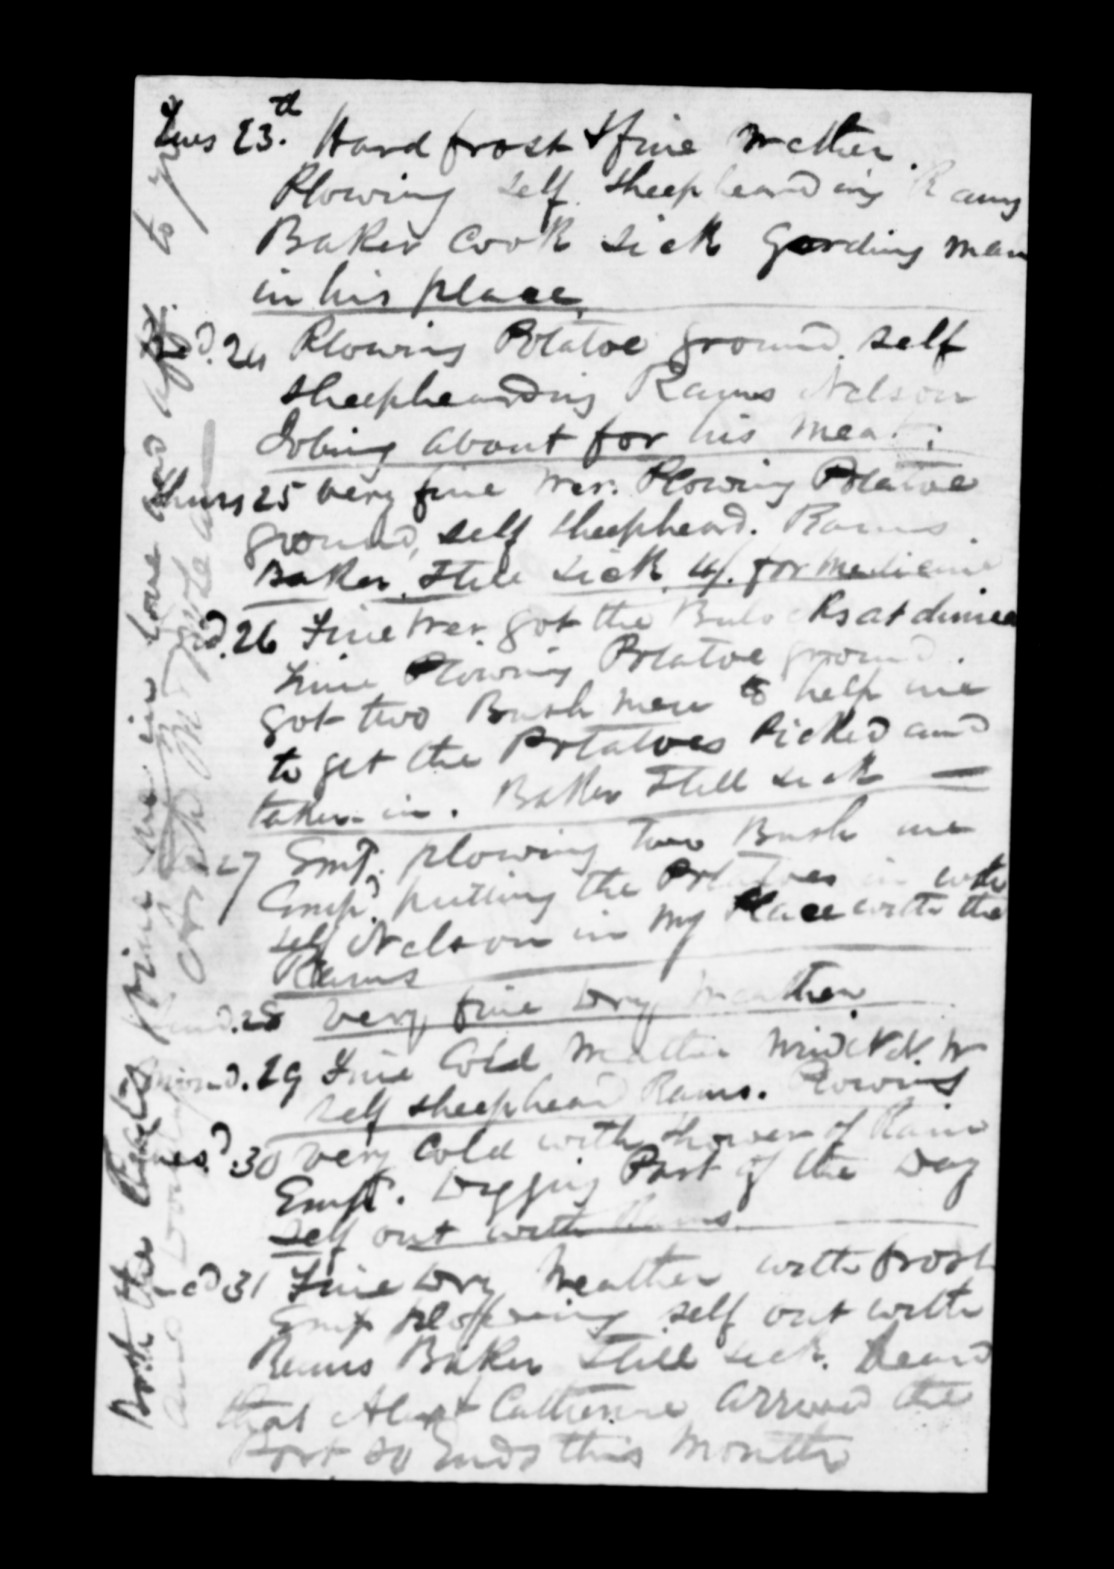 Tues 23.d Hard frost & fine Wether.
Plowing self sheepheanding Rams
Baker Cook sick Gording man
in his place.
24 Plowing Potatoe ground. self
sheepheanding Rams Nelson
Jobing about for his Meat.
Thurs 25 very fine Wer. Plowing Potatoe
ground, self sheepheard. Rams.
Baker Still sick for Medicine
26 Fine Wer. got the Bulocks at dinner
time Plowing Potatoe ground.
got two Bush men to help me
to get the Potatoes Picked and
taken in. Baker Still sick
27 Empd. plowing two Bush me
Empd. putting the Potatoes in with
self Nelson in My Place with the
Rams
28 very fine Dry Weather
Mond. 29 Fine Cold Weather Wind N.N.W
self sheepheard Rams. Plowing
Tuesd. 30 very Cold with Shower of Rain
Empd. Digging Part of the Day
self out with Rams
31 Fine Dry Weather with frost
Emp self out with
Rams Baker Still sick. Heard
that Catherine arrived the
Port so Ends this Month
Both the me in love and
to
and